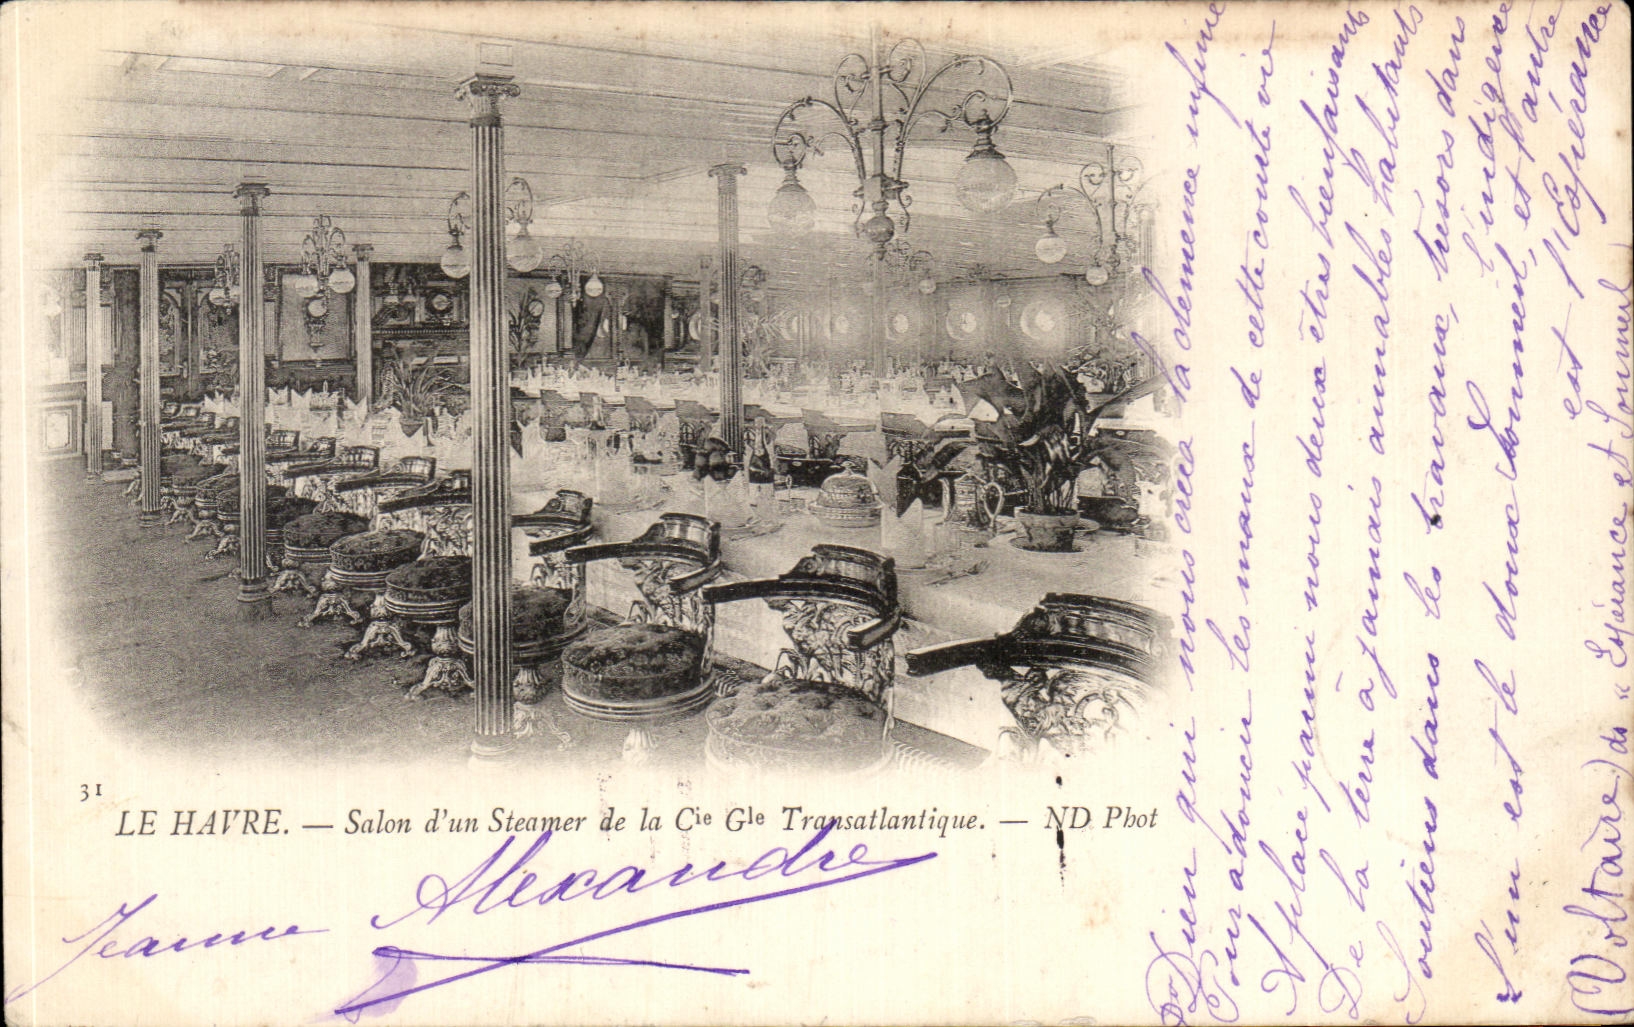 31
LE HAVRE. — Salon d'un Steamer de la Cie Gle Transatlantique. — ND Phot
Jeanne Alexandre
Dieu qui nous créea la clémence infinie
Pour adoucir les maux de cette courte vie
A placé parmi nous deux êtres bienfaisants
De la terre à jamais aimables habitants
Soutiens dans les travaux, trésors dans l'indigence
L'un est le doux Sommeil, et l'autre est l'Espérance
(Voltaire) ds "Espérance et Sommeil